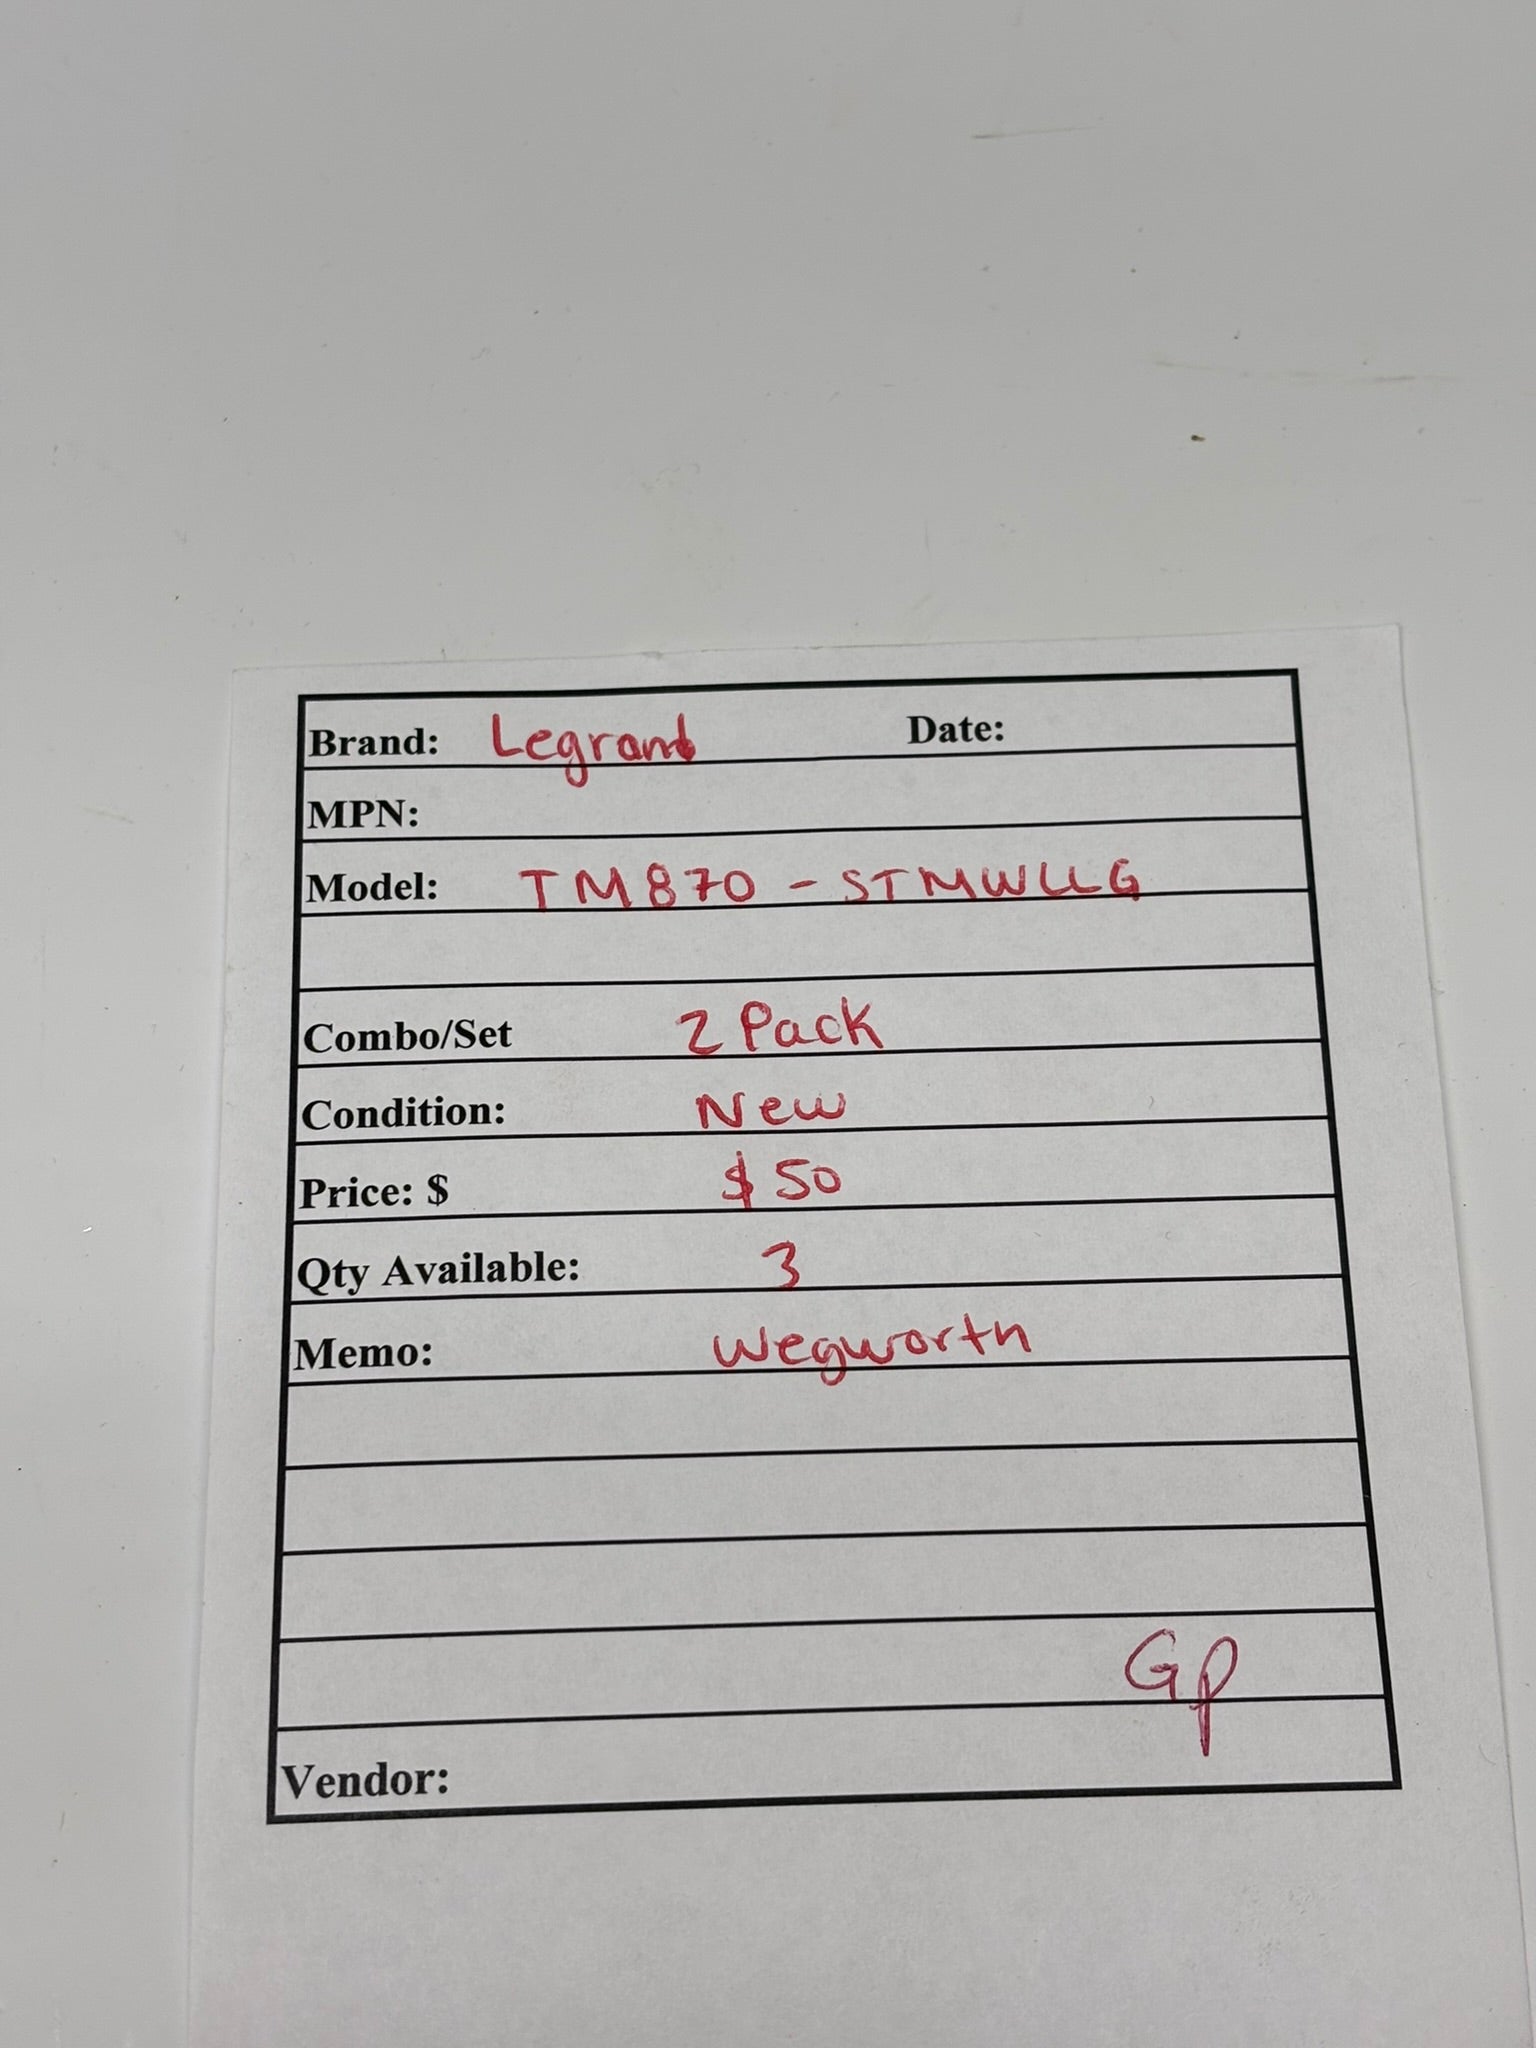 Brand: Legrand Date:
MPN:
Model: TM870 - STMWLLG
Combo/Set 2 Pack
Condition: New
Price: $ $50
Qty Available: 3
Memo: Wegworth
GP
Vendor: